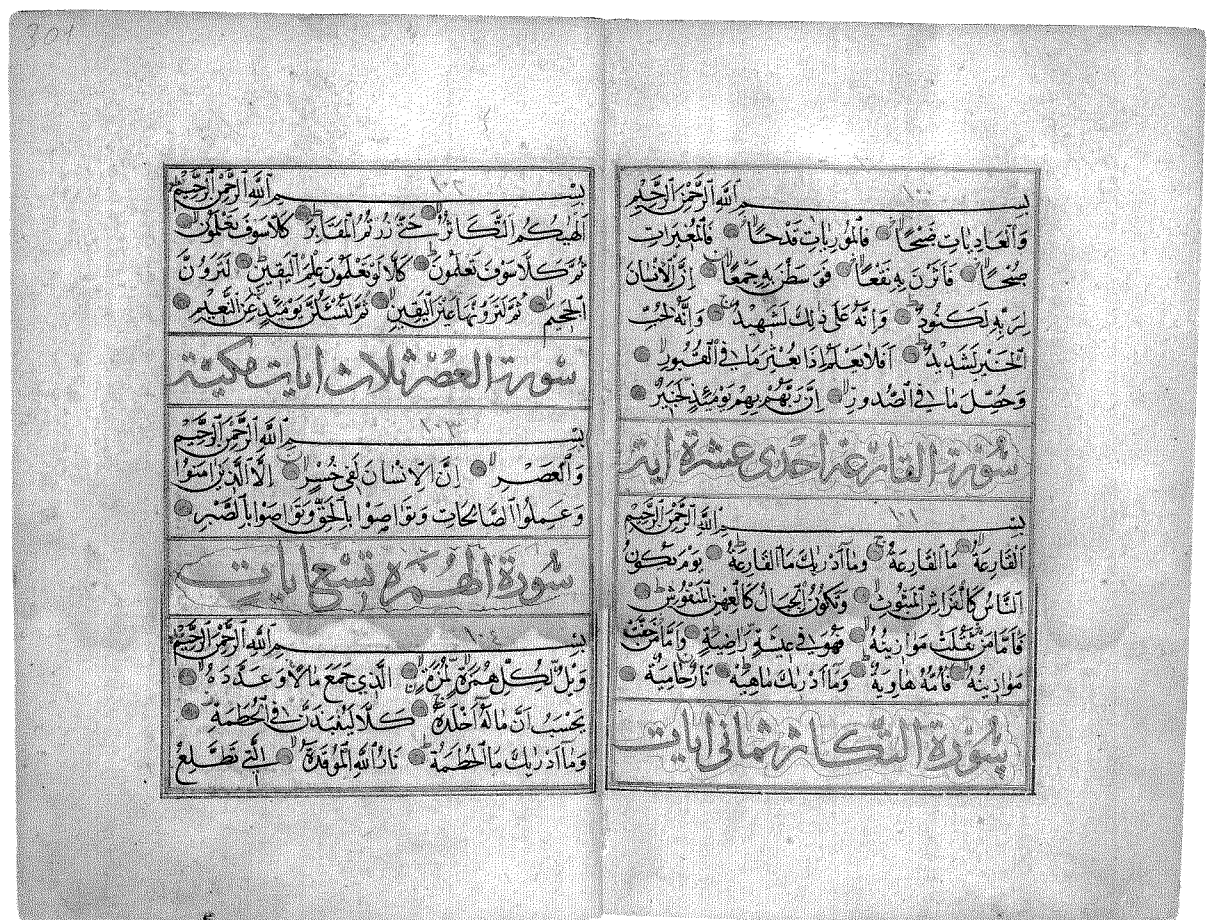 ١٠٠
بِسْمِ اللَّهِ الرَّحْمٰنِ الرَّحِيمِ
وَالْعَادِيَاتِ ضَبْحًا فَالْمُورِيَاتِ قَدْحًا فَالْمُغِيرَاتِ
صُبْحًا فَأَثَرْنَ بِهِ نَقْعًا فَوَسَطْنَ بِهِ جَمْعًا إِنَّ الْإِنْسَانَ
لِرَبِّهِ لَكَنُودٌ وَإِنَّهُ عَلَى ذٰلِكَ لَشَهِيدٌ وَإِنَّهُ لِحُبِّ
الْخَيْرِ لَشَدِيدٌ أَفَلَا يَعْلَمُ إِذَا بُعْثِرَ مَا فِي الْقُبُورِ
وَحُصِّلَ مَا فِي الصُّدُورِ إِنَّ رَبَّهُمْ بِهِمْ يَوْمَئِذٍ لَخَبِيرٌ
سُورَة القارعة احدى عشرة اية
١٠١
بِسْمِ اللَّهِ الرَّحْمٰنِ الرَّحِيمِ
اَلْقَارِعَةُ مَا الْقَارِعَةُ وَمَا أَدْرٰيكَ مَا الْقَارِعَةُ يَوْمَ يَكُونُ
النَّاسُ كَالْفَرَاشِ الْمَبْثُوثِ وَتَكُونُ الْجِبَالُ كَالْعِهْنِ الْمَنْفُوشِ
فَأَمَّا مَنْ ثَقُلَتْ مَوَازِينُهُ فَهُوَ فِي عِيشَةٍ رَاضِيَةٍ وَأَمَّا مَنْ خَفَّتْ
مَوَازِينُهُ فَأُمُّهُ هَاوِيَةٌ وَمَا أَدْرٰيكَ مَا هِيَهْ نَارٌ حَامِيَةٌ
سُورَة التكاثر ثماني ايات
١٠٢
بِسْمِ اللَّهِ الرَّحْمٰنِ الرَّحِيمِ
أَلْهٰيكُمُ التَّكَاثُرُ حَتَّى زُرْتُمُ الْمَقَابِرَ كَلَّا سَوْفَ تَعْلَمُونَ
ثُمَّ كَلَّا سَوْفَ تَعْلَمُونَ كَلَّا لَوْ تَعْلَمُونَ عِلْمَ الْيَقِينِ لَتَرَوُنَّ
الْجَحِيمَ ثُمَّ لَتَرَوُنَّهَا عَيْنَ الْيَقِينِ ثُمَّ لَتُسْئَلُنَّ يَوْمَئِذٍ عَنِ النَّعِيمِ
سُورَة العصر ثلاث ايات مكية
١٠٣
بِسْمِ اللَّهِ الرَّحْمٰنِ الرَّحِيمِ
وَالْعَصْرِ إِنَّ الْإِنْسَانَ لَفِي خُسْرٍ إِلَّا الَّذِينَ اٰمَنُوا
وَعَمِلُوا الصَّالِحَاتِ وَتَوَاصَوْا بِالْحَقِّ وَتَوَاصَوْا بِالصَّبْرِ
سُورَة الهمزه تسع ايات
١٠٤
بِسْمِ اللَّهِ الرَّحْمٰنِ الرَّحِيمِ
وَيْلٌ لِكُلِّ هُمَزَةٍ لُمَزَةٍ الَّذِي جَمَعَ مَالًا وَعَدَّدَهُ
يَحْسَبُ أَنَّ مَالَهُ أَخْلَدَهُ كَلَّا لَيُنْبَذَنَّ فِي الْحُطَمَةِ
وَمَا أَدْرٰيكَ مَا الْحُطَمَةُ نَارُ اللَّهِ الْمُوقَدَةُ الَّتِي تَطَّلِعُ
301